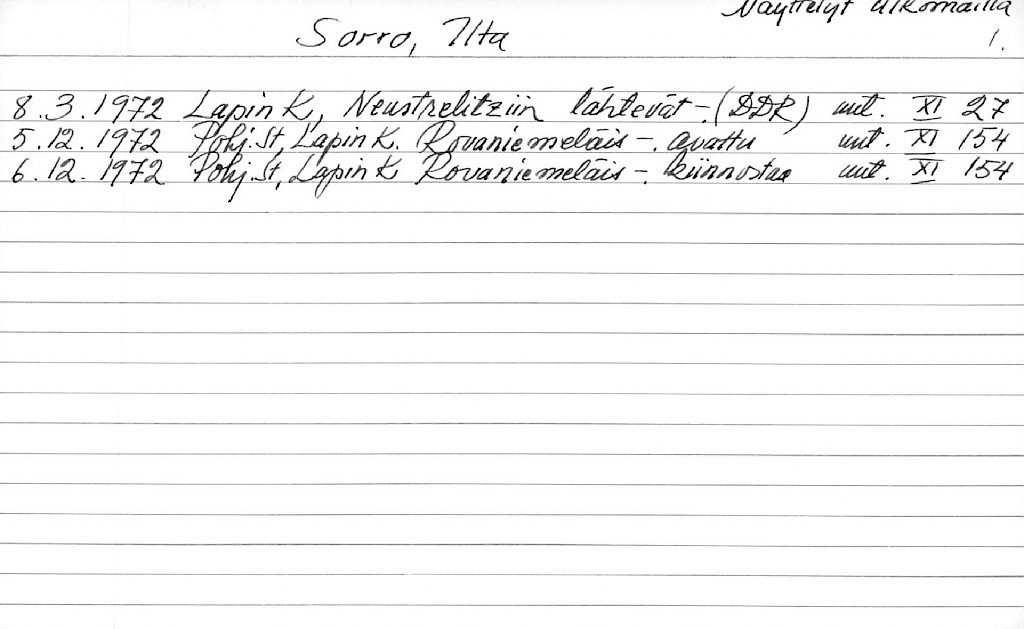 Näyttelyt ulkomailla
Sorro, Ilta 1.
8.3.1972 Lapin K, Neustrelitziin lähtevät -. (DDR) mt. XI 27
5.12.1972 Pohj.St, Lapin K. Rovaniemeläis -. avattu mt. XI 154
6.12.1972 Pohj.St, Lapin K Rovaniemeläis -. kiinnostaa mt. XI 154